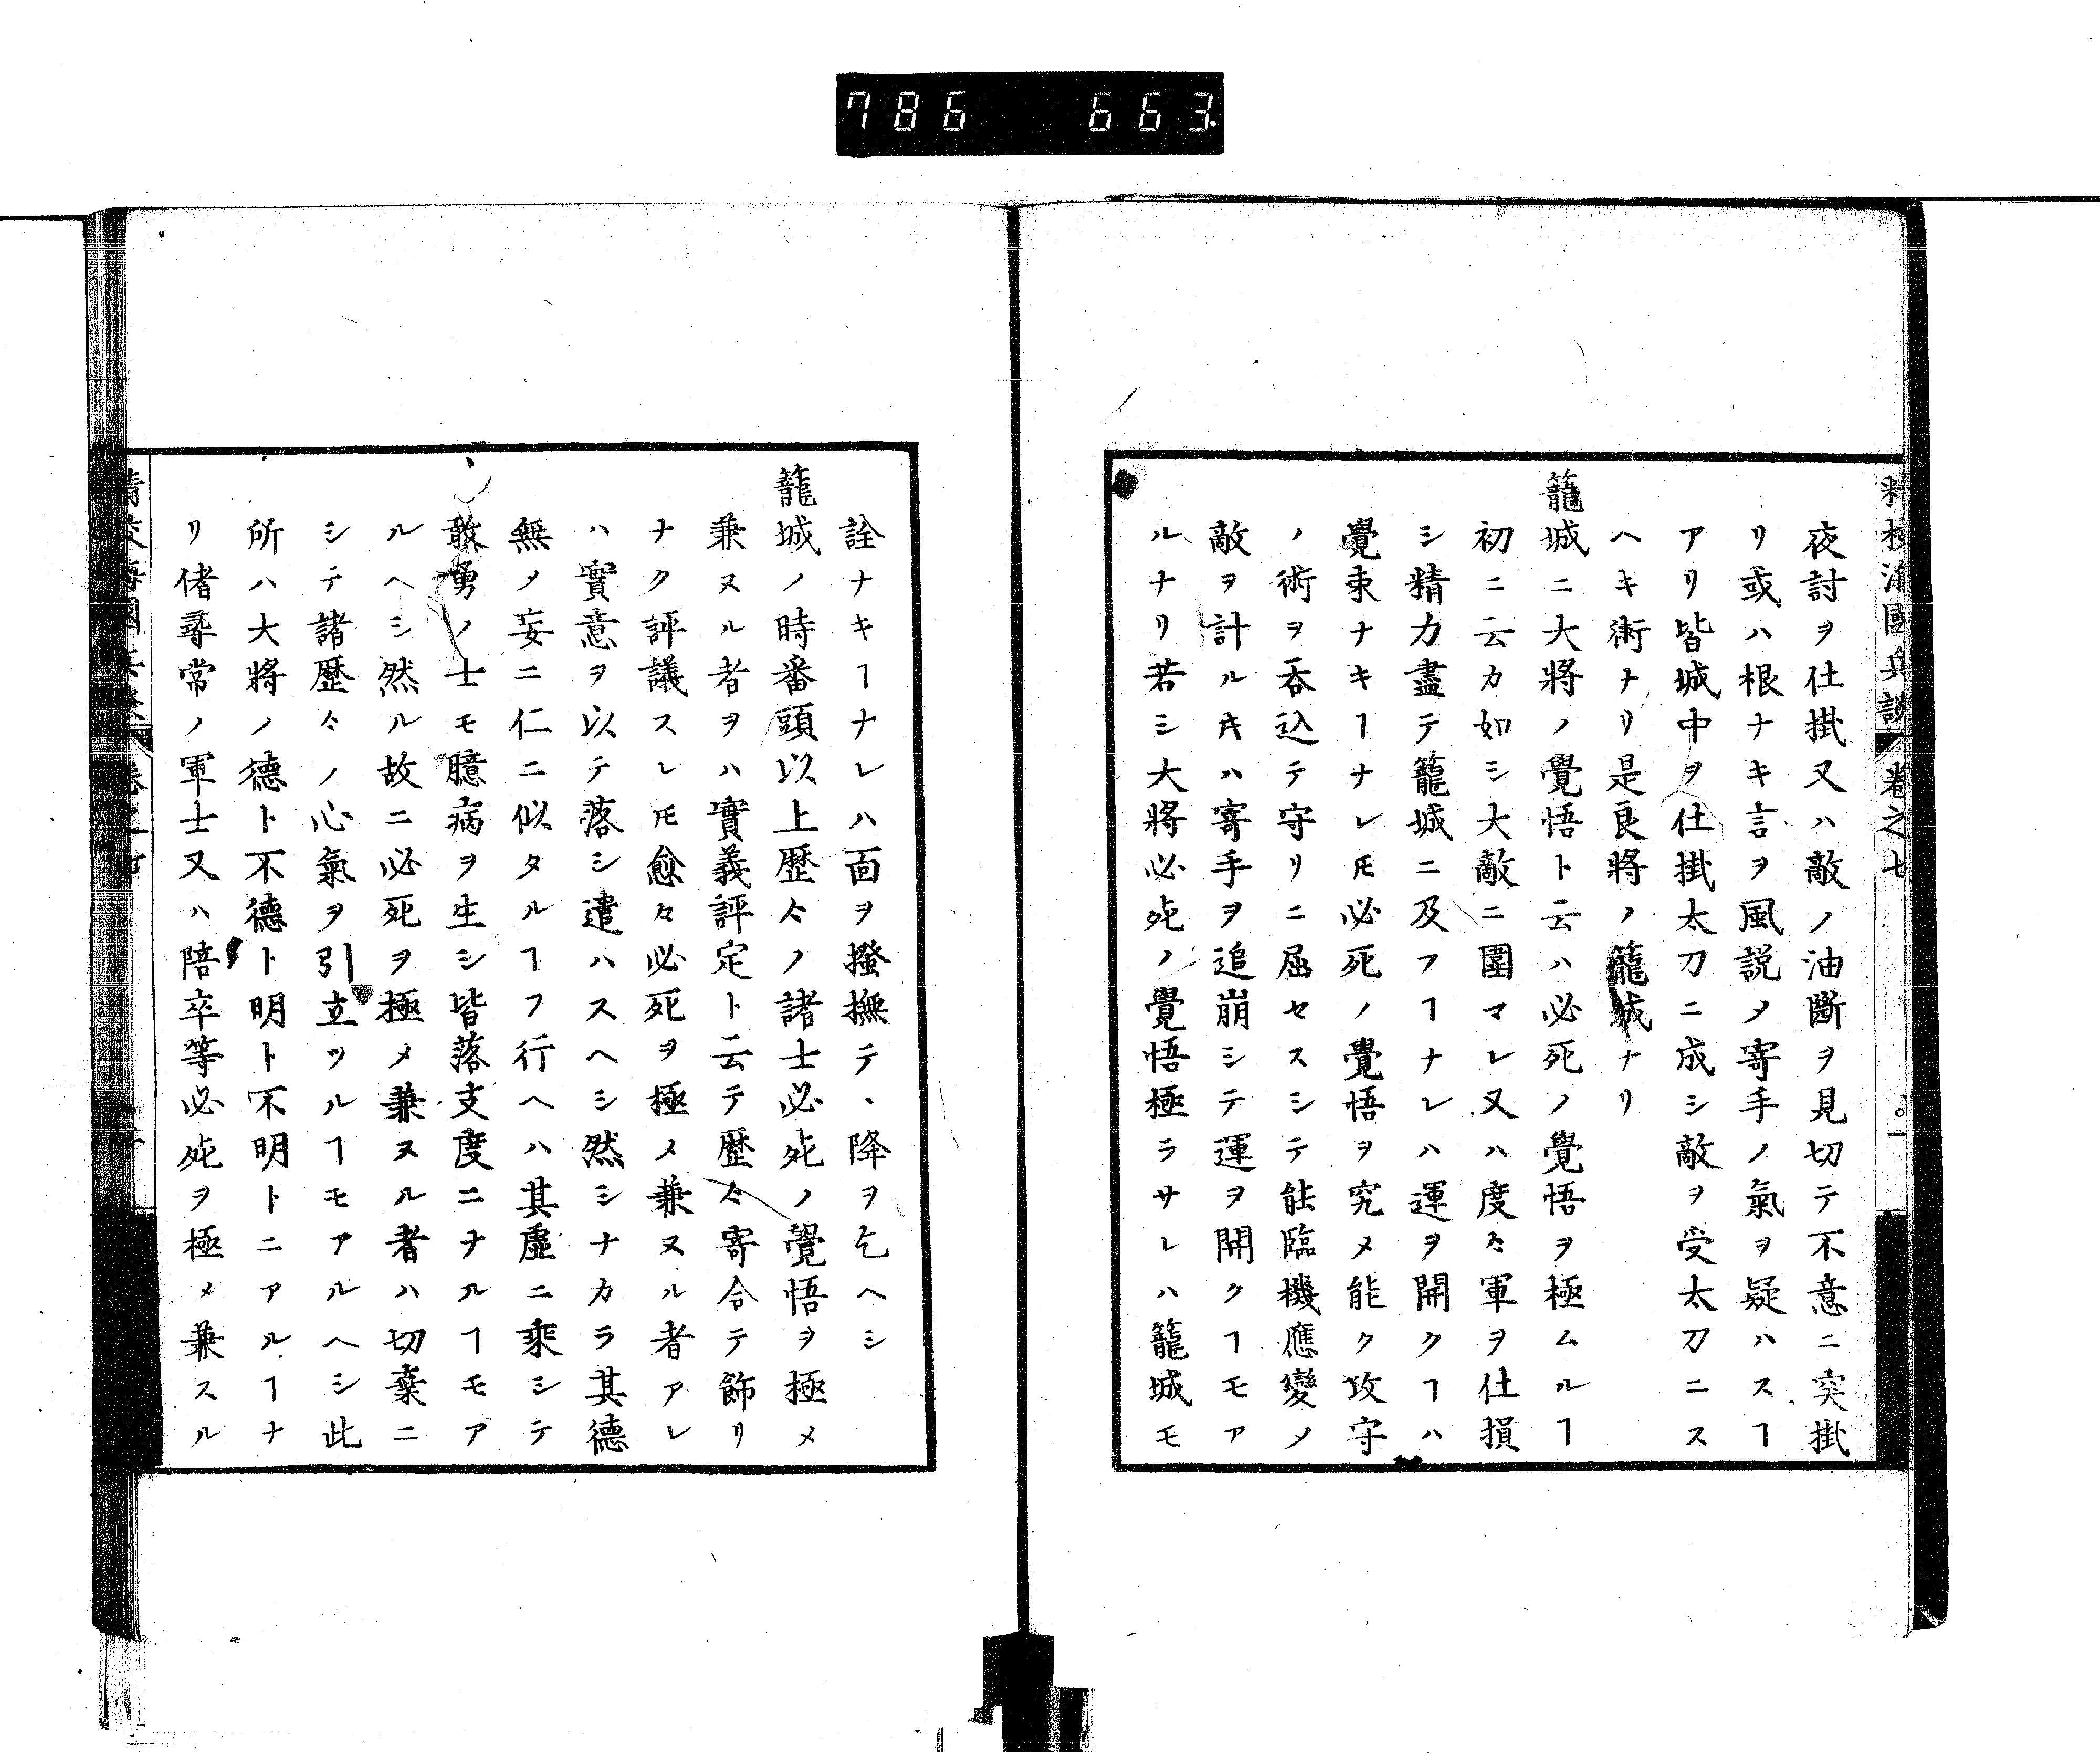 786 663
精校海國兵談 卷之七
夜討ヲ仕掛又ハ敵ノ油斷ヲ見切テ不意ニ突掛
リ或ハ根ナキ言ヲ風説メ寄手ノ氣ヲ疑ハスヿ
アリ皆城中ヲ仕掛太刀ニ成シ敵ヲ受太刀ニス
ヘキ術ナリ是良將ノ籠城ナリ
籠城ニ大將ノ覺悟ト云ハ必死ノ覺悟ヲ極ムルヿ
初ニ云カ如シ大敵ニ圍マレ又ハ度々軍ヲ仕損
シ精力盡テ籠城ニ及フヿナレハ運ヲ開クヿハ
覺束ナキヿナレ𪜈必死ノ覺悟ヲ究メ能ク攻守
ノ術ヲ呑込テ守リニ屈セスシテ能臨機應變ノ
敵ヲ計ルキハ寄手ヲ追崩シテ運ヲ開クヿモア
ルナリ若シ大將必死ノ覺悟極ラサレハ籠城モ
詮ナキヿナレハ面ヲ撥撫テ、降ヲ乞ヘシ
籠城ノ時番頭以上歷々ノ諸士必死ノ覺悟ヲ極メ
兼ヌル者ヲハ實義評定ト云テ歷々寄合テ飾リ
ナク評議スレ𪜈愈々必死ヲ極メ兼ヌル者アレ
ハ實意ヲ以テ落シ遣ハスヘシ然シナカラ其德
無メ妄ニ仁ニ似タルヿフ行ヘハ其虛ニ乘シテ
敢勇ノ士モ臆病ヲ生シ皆落支度ニナルヿモア
ルヘシ然ル故ニ必死ヲ極メ兼ヌル者ハ切棄ニ
シテ諸歷々ノ心氣ヲ引立ツルヿモアルヘシ此
所ハ大將ノ德ト不德ト明ト不明トニアルヿナ
リ偖尋常ノ軍士又ハ陪卒等必死ヲ極メ兼スル